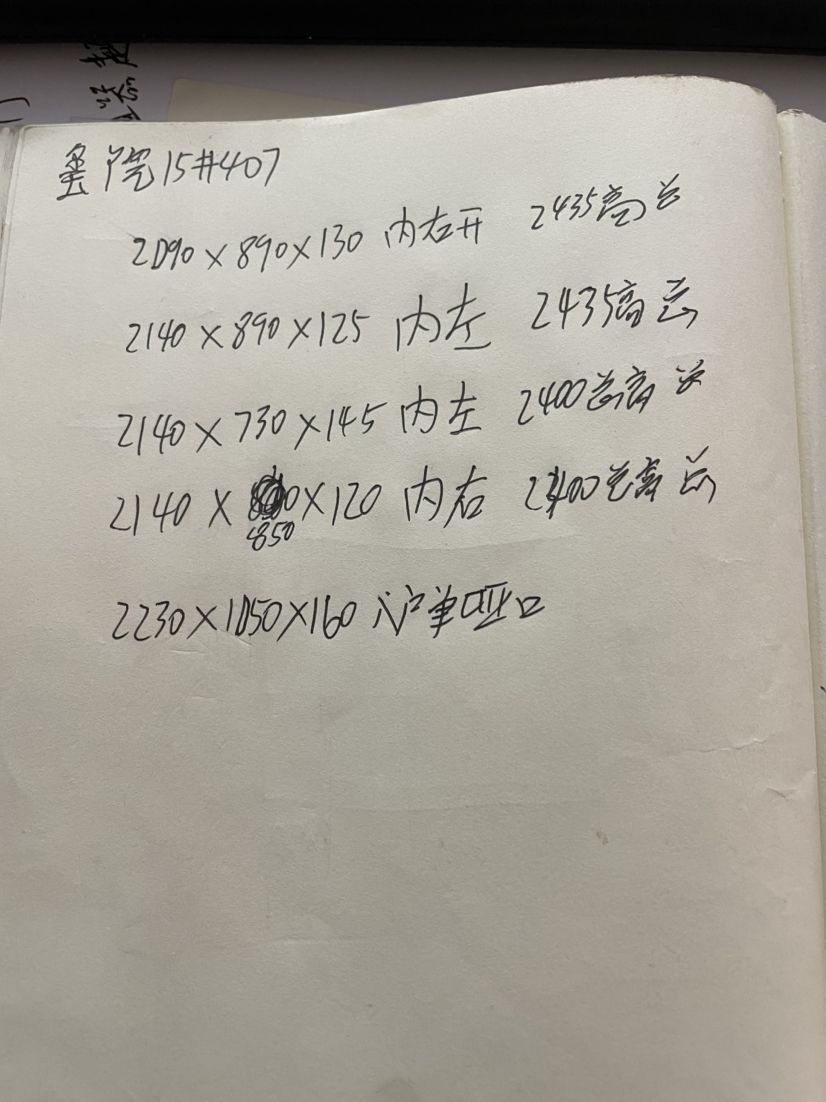 墅院15#407
2090×890×130 内右开 2435高
2140×890×125 内左 2435高
2140×730×145 内左 2400总高
2140×850×120 内右 2400总高
2230×1050×160 入户单哑口